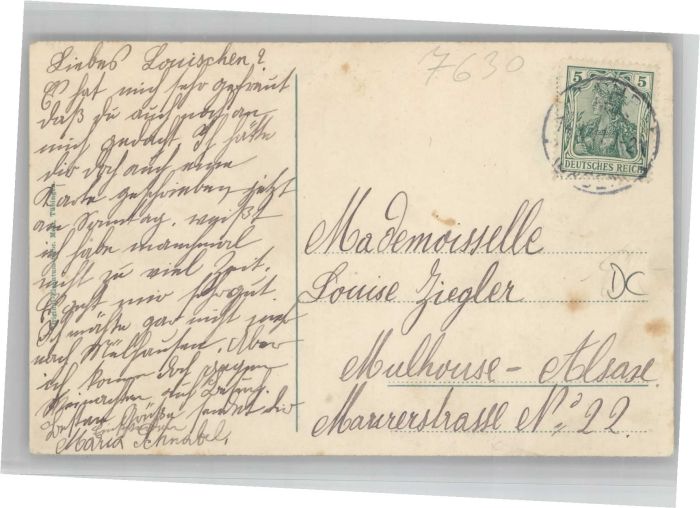 Liebes Louischen!
Es hat mich sehr gefreut
daß du auch noch an
mich gedacht. Ich hätte
dir doch auch eine
Karte geschrieben jetzt
am Sonntag. weißt
ich habe manchmal
nicht zu viel Zeit.
Es geht mir sehr gut.
Ich möchte gar nicht mehr
nach Mülhausen. Aber
ich komme doch
Weinachten auf Besuch.
Besten Grüße sendet dir
Maria Schnabel.
7630
5 5
DEUTSCHES REICH
Mademoisselle
Louise Ziegler
DC
Mulhouse-Alsase.
Maurerstrasse No 22.